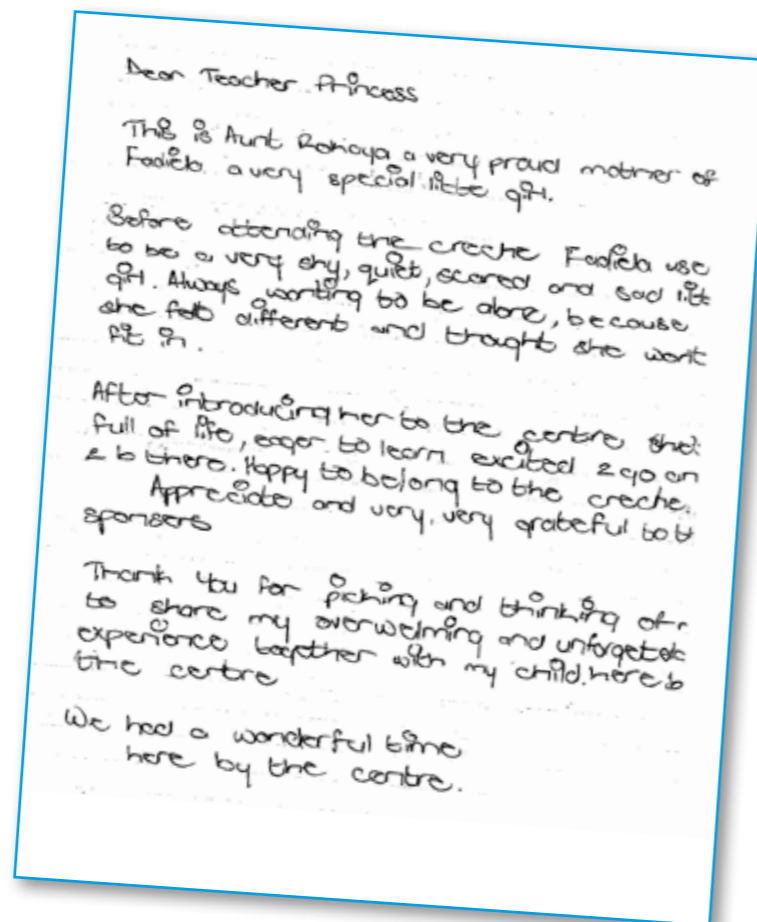 Dear Teacher Princess
This is Aunt Rohaya a very proud mother of
Fadiela a very special little girl.
Before attending the creche Fadiela use
to be a very shy, quiet, scared and sad litt
girl. Always wanting to be alone, because
she felt different and thought she wont
fit in.
After introducing her to the centre
full of life, eager to learn excited 2 go on
2 b there. Happy to belong to the creche.
Appreciate and very, very grateful to
sponsers
Thank You for picking and thinking of
to share my overwelming and
experience together with my child. here b
the centre
We had a wonderful time
here by the centre.